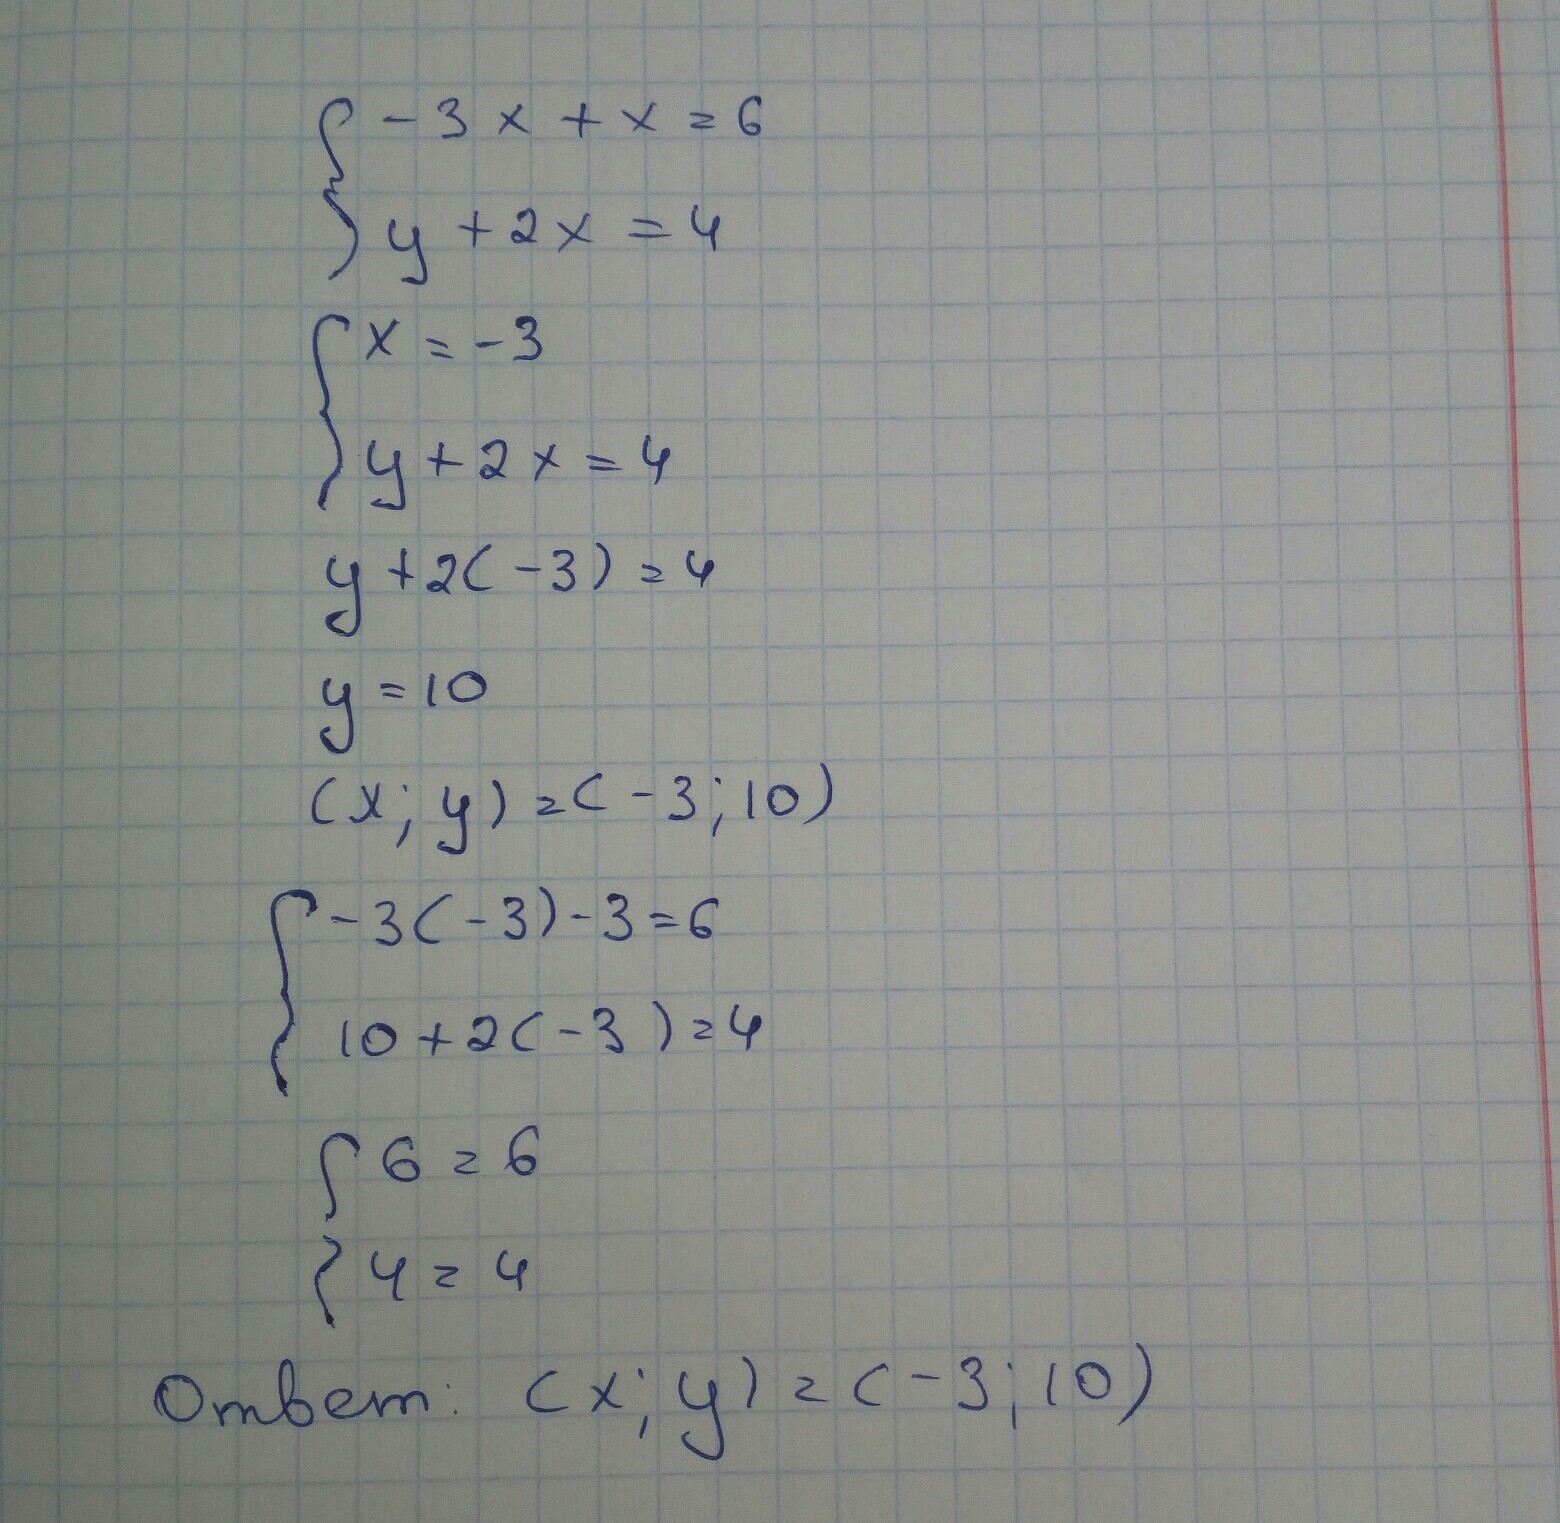 { -3x + x = 6
y + 2x = 4
{ x = -3
y + 2x = 4
y + 2(-3) = 4
y = 10
(x; y) = (-3; 10)
{ -3(-3) - 3 = 6
10 + 2(-3) = 4
{ 6 = 6
4 = 4
Ответ: (x; y) = (-3; 10)